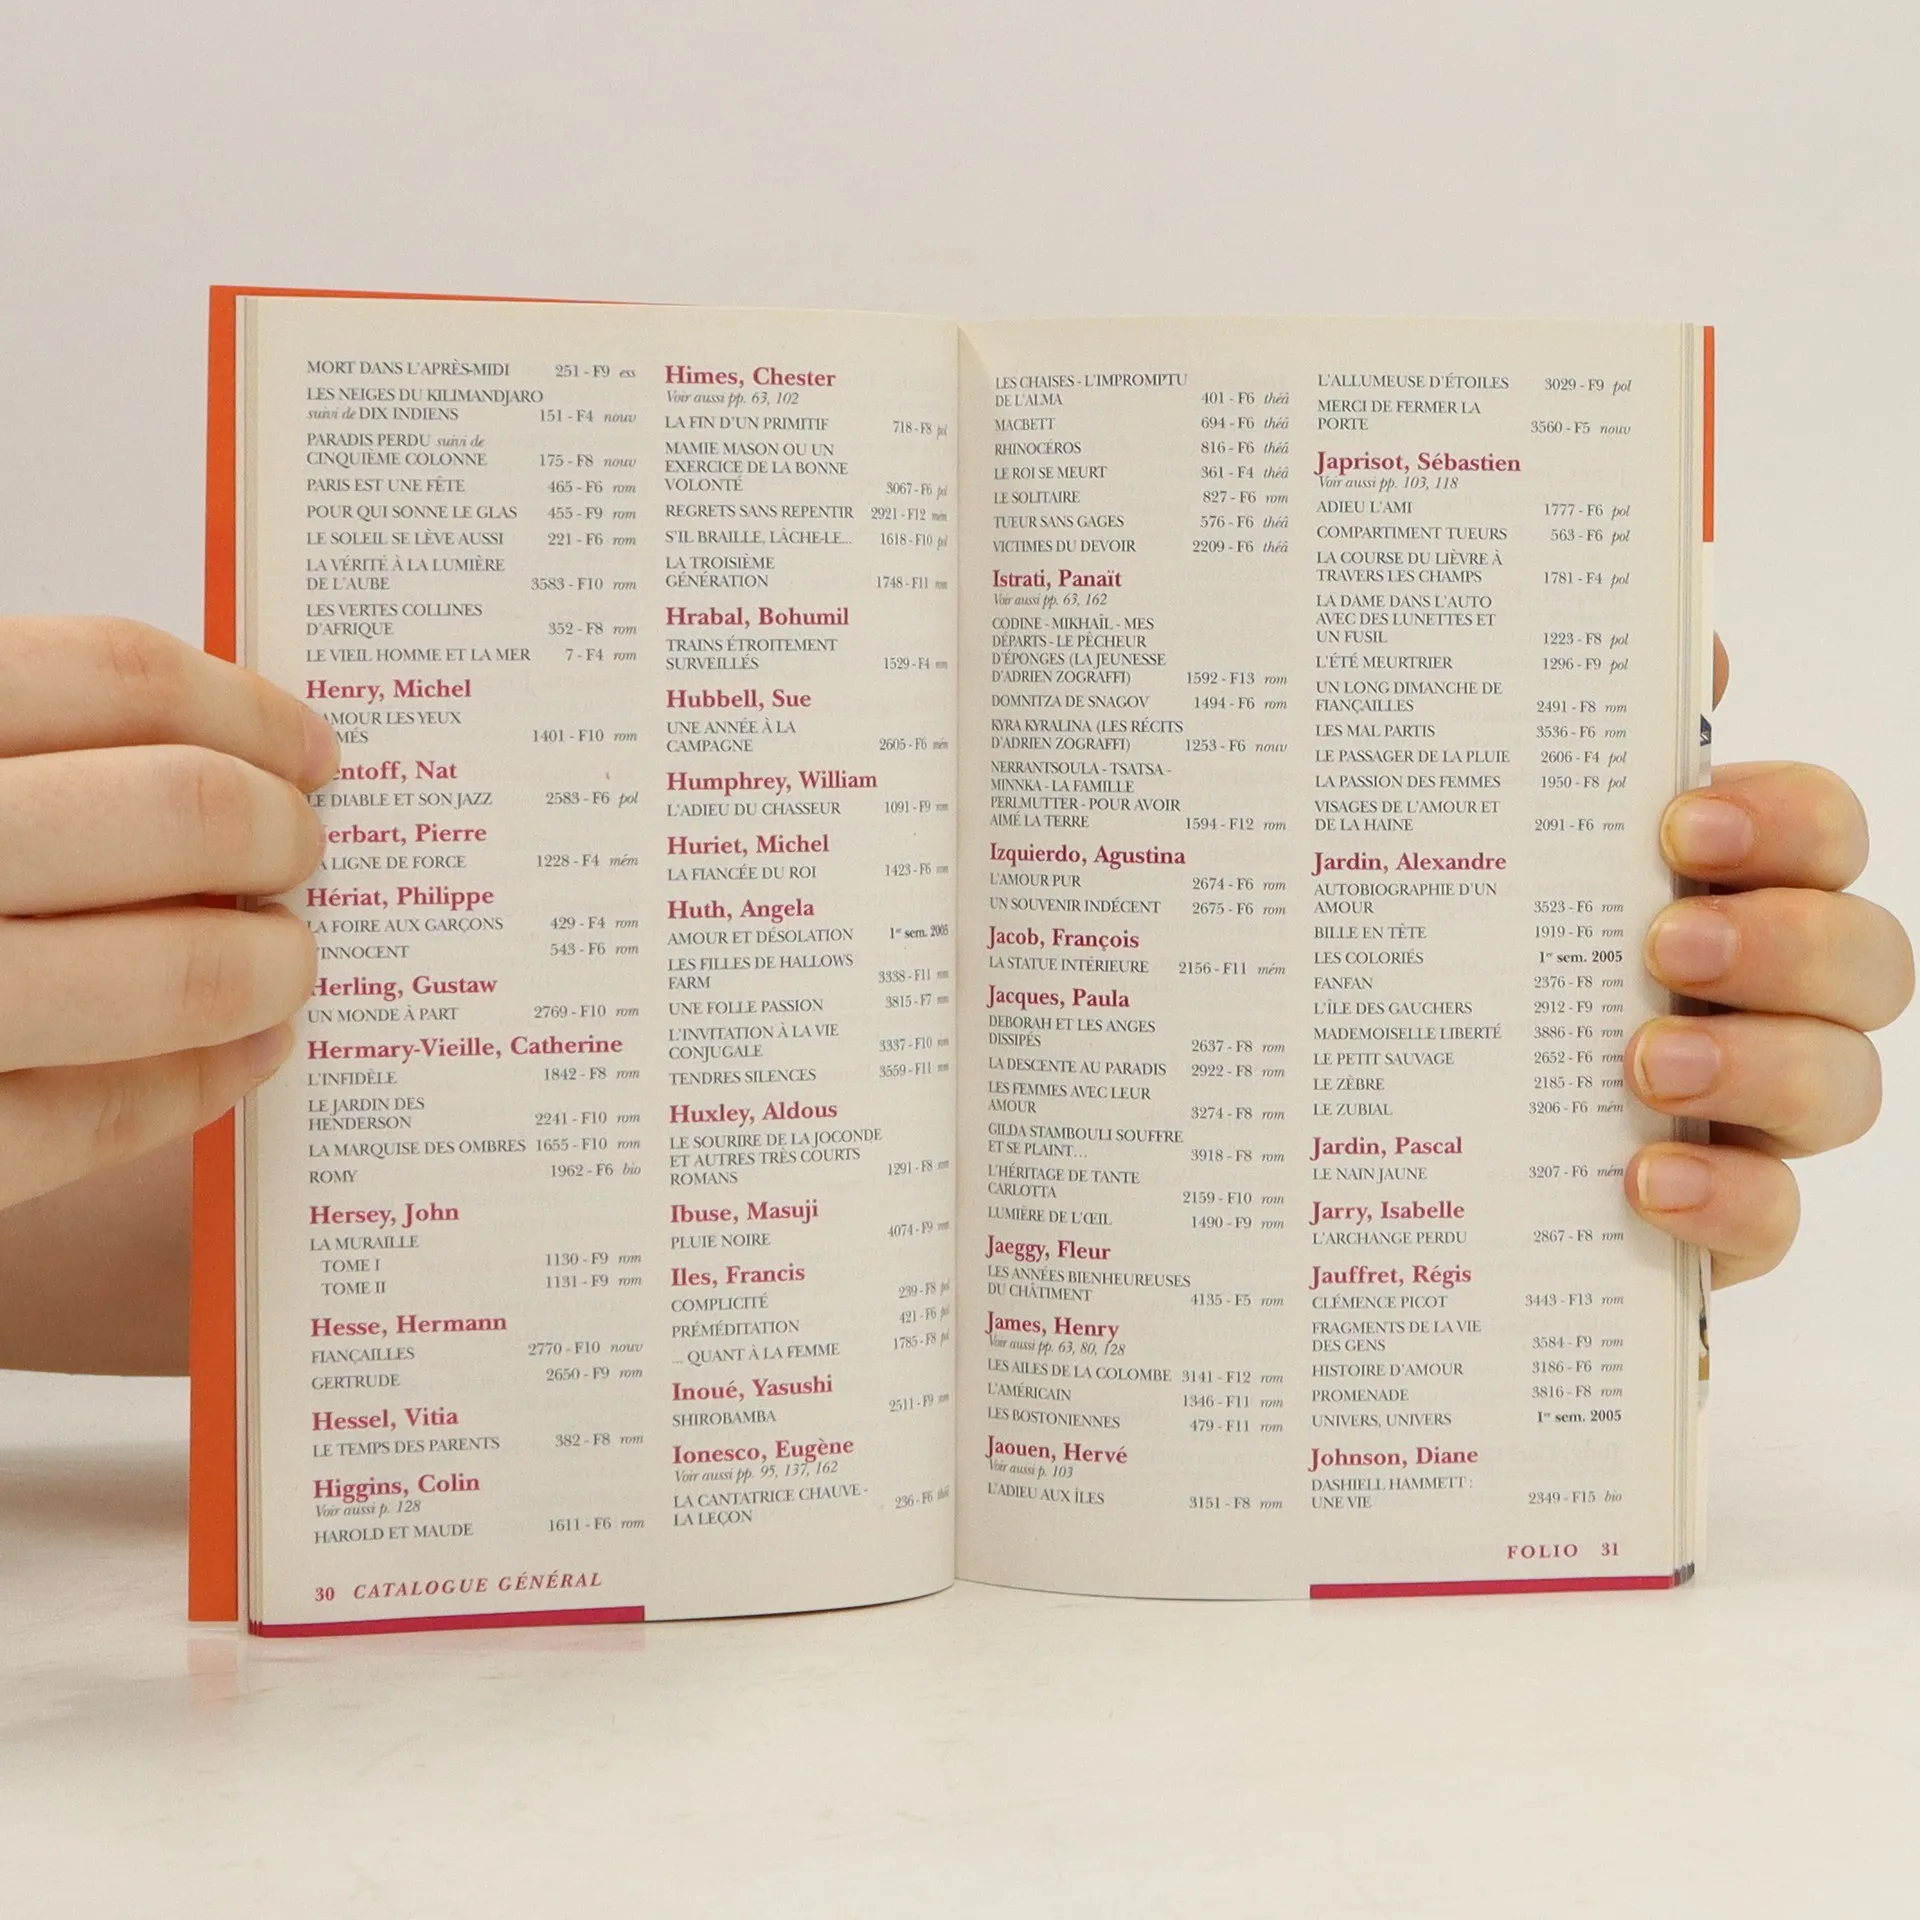 MORT DANS L'APRÈS-MIDI 251 - F9 ess
LES NEIGES DU KILIMANDJARO
suivi de DIX INDIENS 151 - F4 nouv
PARADIS PERDU suivi de
CINQUIÈME COLONNE 175 - F8 nouv
PARIS EST UNE FÊTE 465 - F6 rom
POUR QUI SONNE LE GLAS 455 - F9 rom
LE SOLEIL SE LÈVE AUSSI 221 - F6 rom
LA VÉRITÉ À LA LUMIÈRE
DE L'AUBE 3583 - F10 rom
LES VERTES COLLINES
D'AFRIQUE 352 - F8 rom
LE VIEIL HOMME ET LA MER 7 - F4 rom
Henry, Michel
AMOUR LES YEUX
MÉS 1401 - F10 rom
entoff, Nat
LE DIABLE ET SON JAZZ 2583 - F6 pol
erbart, Pierre
LA LIGNE DE FORCE 1228 - F4 mém
Hériat, Philippe
LA FOIRE AUX GARÇONS 429 - F4 rom
L'INNOCENT 543 - F6 rom
Herling, Gustaw
UN MONDE À PART 2769 - F10 rom
Hermary-Vieille, Catherine
L'INFIDÈLE 1842 - F8 rom
LE JARDIN DES
HENDERSON 2241 - F10 rom
LA MARQUISE DES OMBRES 1655 - F10 rom
ROMY 1962 - F6 bio
Hersey, John
LA MURAILLE
TOME I 1130 - F9 rom
TOME II 1131 - F9 rom
Hesse, Hermann
FIANÇAILLES 2770 - F10 nouv
GERTRUDE 2650 - F9 rom
Hessel, Vitia
LE TEMPS DES PARENTS 382 - F8 rom
Higgins, Colin
Voir aussi p. 128
HAROLD ET MAUDE 1611 - F6 rom
30 CATALOGUE GÉNÉRAL
Himes, Chester
Voir aussi pp. 63, 102
LA FIN D'UN PRIMITIF 718 - F8 pol
MAMIE MASON OU UN
EXERCICE DE LA BONNE
VOLONTÉ 3067 - F6 pol
REGRETS SANS REPENTIR 2921 - F12 mém
S'IL BRAILLE, LÂCHE-LE... 1618 - F10 pol
LA TROISIÈME
GÉNÉRATION 1748 - F11 rom
Hrabal, Bohumil
TRAINS ÉTROITEMENT
SURVEILLÉS 1529 - F4 rom
Hubbell, Sue
UNE ANNÉE À LA
CAMPAGNE 2605 - F6 mém
Humphrey, William
L'ADIEU DU CHASSEUR 1091 - F9 rom
Huriet, Michel
LA FIANCÉE DU ROI 1423 - F6 rom
Huth, Angela
AMOUR ET DÉSOLATION 1er sem. 2005
LES FILLES DE HALLOWS
FARM 3338 - F11 rom
UNE FOLLE PASSION 3815 - F7 rom
L'INVITATION À LA VIE
CONJUGALE 3337 - F10 rom
TENDRES SILENCES 3559 - F11 rom
Huxley, Aldous
LE SOURIRE DE LA JOCONDE
ET AUTRES TRÈS COURTS
ROMANS 1291 - F8 rom
Ibuse, Masuji
PLUIE NOIRE 4074 - F9 rom
Iles, Francis
COMPLICITÉ 239 - F8 pol
PRÉMÉDITATION 421 - F6 pol
... QUANT À LA FEMME 1785 - F8 pol
Inoué, Yasushi
SHIROBAMBA 2511 - F9 rom
Ionesco, Eugène
Voir aussi pp. 95, 137, 162
LA CANTATRICE CHAUVE -
LA LEÇON 236 - F6 théâ
LES CHAISES - L'IMPROMPTU
DE L'ALMA 401 - F6 théâ
MACBETT 694 - F6 théâ
RHINOCÉROS 816 - F6 théâ
LE ROI SE MEURT 361 - F4 théâ
LE SOLITAIRE 827 - F6 rom
TUEUR SANS GAGES 576 - F6 théâ
VICTIMES DU DEVOIR 2209 - F6 théâ
Istrati, Panaït
Voir aussi pp. 63, 162
CODINE - MIKHAÏL - MES
DÉPARTS - LE PÊCHEUR
D'ÉPONGES (LA JEUNESSE
D'ADRIEN ZOGRAFFI) 1592 - F13 rom
DOMNITZA DE SNAGOV 1494 - F6 rom
KYRA KYRALINA (LES RÉCITS
D'ADRIEN ZOGRAFFI) 1253 - F6 nouv
NERRANTSOULA - TSATSA -
MINNKA - LA FAMILLE
PERLMUTTER - POUR AVOIR
AIMÉ LA TERRE 1594 - F12 rom
Izquierdo, Agustina
L'AMOUR PUR 2674 - F6 rom
UN SOUVENIR INDÉCENT 2675 - F6 rom
Jacob, François
LA STATUE INTÉRIEURE 2156 - F11 mém
Jacques, Paula
DEBORAH ET LES ANGES
DISSIPÉS 2637 - F8 rom
LA DESCENTE AU PARADIS 2922 - F8 rom
LES FEMMES AVEC LEUR
AMOUR 3274 - F8 rom
GILDA STAMBOULI SOUFFRE
ET SE PLAINT... 3918 - F8 rom
L'HÉRITAGE DE TANTE
CARLOTTA 2159 - F10 rom
LUMIÈRE DE L'ŒIL 1490 - F9 rom
Jaeggy, Fleur
LES ANNÉES BIENHEUREUSES
DU CHÂTIMENT 4135 - F5 rom
James, Henry
Voir aussi pp. 63, 80, 128
LES AILES DE LA COLOMBE 3141 - F12 rom
L'AMÉRICAIN 1346 - F11 rom
LES BOSTONIENNES 479 - F11 rom
Jaouen, Hervé
Voir aussi p. 103
L'ADIEU AUX ÎLES 3151 - F8 rom
L'ALLUMEUSE D'ÉTOILES 3029 - F9 pol
MERCI DE FERMER LA
PORTE 3560 - F5 nouv
Japrisot, Sébastien
Voir aussi pp. 103, 118
ADIEU L'AMI 1777 - F6 pol
COMPARTIMENT TUEURS 563 - F6 pol
LA COURSE DU LIÈVRE À
TRAVERS LES CHAMPS 1781 - F4 pol
LA DAME DANS L'AUTO
AVEC DES LUNETTES ET
UN FUSIL 1223 - F8 pol
L'ÉTÉ MEURTRIER 1296 - F9 pol
UN LONG DIMANCHE DE
FIANÇAILLES 2491 - F8 rom
LES MAL PARTIS 3536 - F6 rom
LE PASSAGER DE LA PLUIE 2606 - F4 pol
LA PASSION DES FEMMES 1950 - F8 pol
VISAGES DE L'AMOUR ET
DE LA HAINE 2091 - F6 rom
Jardin, Alexandre
AUTOBIOGRAPHIE D'UN
AMOUR 3523 - F6 rom
BILLE EN TÊTE 1919 - F6 rom
LES COLORIÉS 1er sem. 2005
FANFAN 2376 - F8 rom
L'ÎLE DES GAUCHERS 2912 - F9 rom
MADEMOISELLE LIBERTÉ 3886 - F6 rom
LE PETIT SAUVAGE 2652 - F6 rom
LE ZÈBRE 2185 - F8 rom
LE ZUBIAL 3206 - F6 mém
Jardin, Pascal
LE NAIN JAUNE 3207 - F6 mém
Jarry, Isabelle
L'ARCHANGE PERDU 2867 - F8 rom
Jauffret, Régis
CLÉMENCE PICOT 3443 - F13 rom
FRAGMENTS DE LA VIE
DES GENS 3584 - F9 rom
HISTOIRE D'AMOUR 3186 - F6 rom
PROMENADE 3816 - F8 rom
UNIVERS, UNIVERS 1er sem. 2005
Johnson, Diane
DASHIELL HAMMETT :
UNE VIE 2349 - F15 bio
FOLIO 31